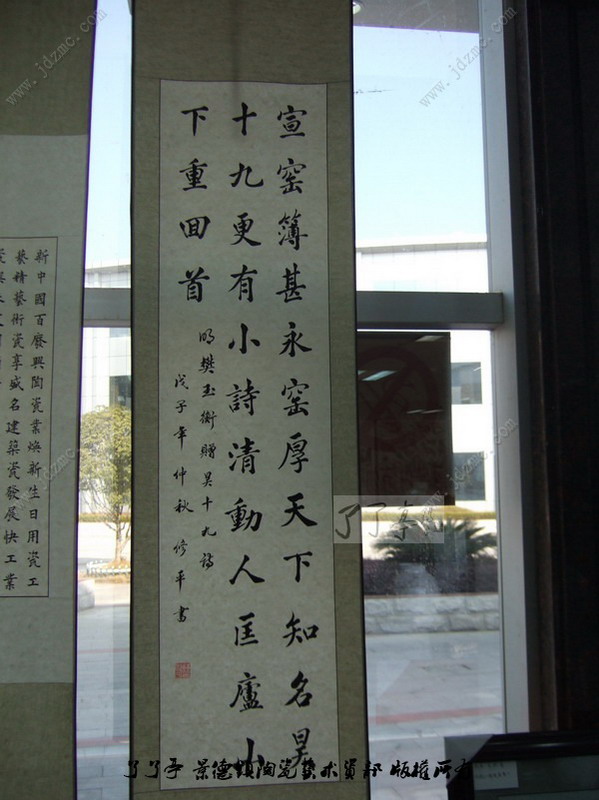 宣窑簿甚永窑厚天下知名昊
十九更有小詩清動人匡廬山
下重囬首
明樊玉衡贈昊十九詩
戊子年仲秋 修平書
新中國百廢興陶瓷業煥新生日用瓷工
藝精藝術瓷享盛名建築瓷發展快工業
www.jdzmc.com
www.jdzmc.com
www.jdzmc.com
www.jdzmc.com
了了亭
了了亭 景德镇陶瓷艺术资邦 版權所有